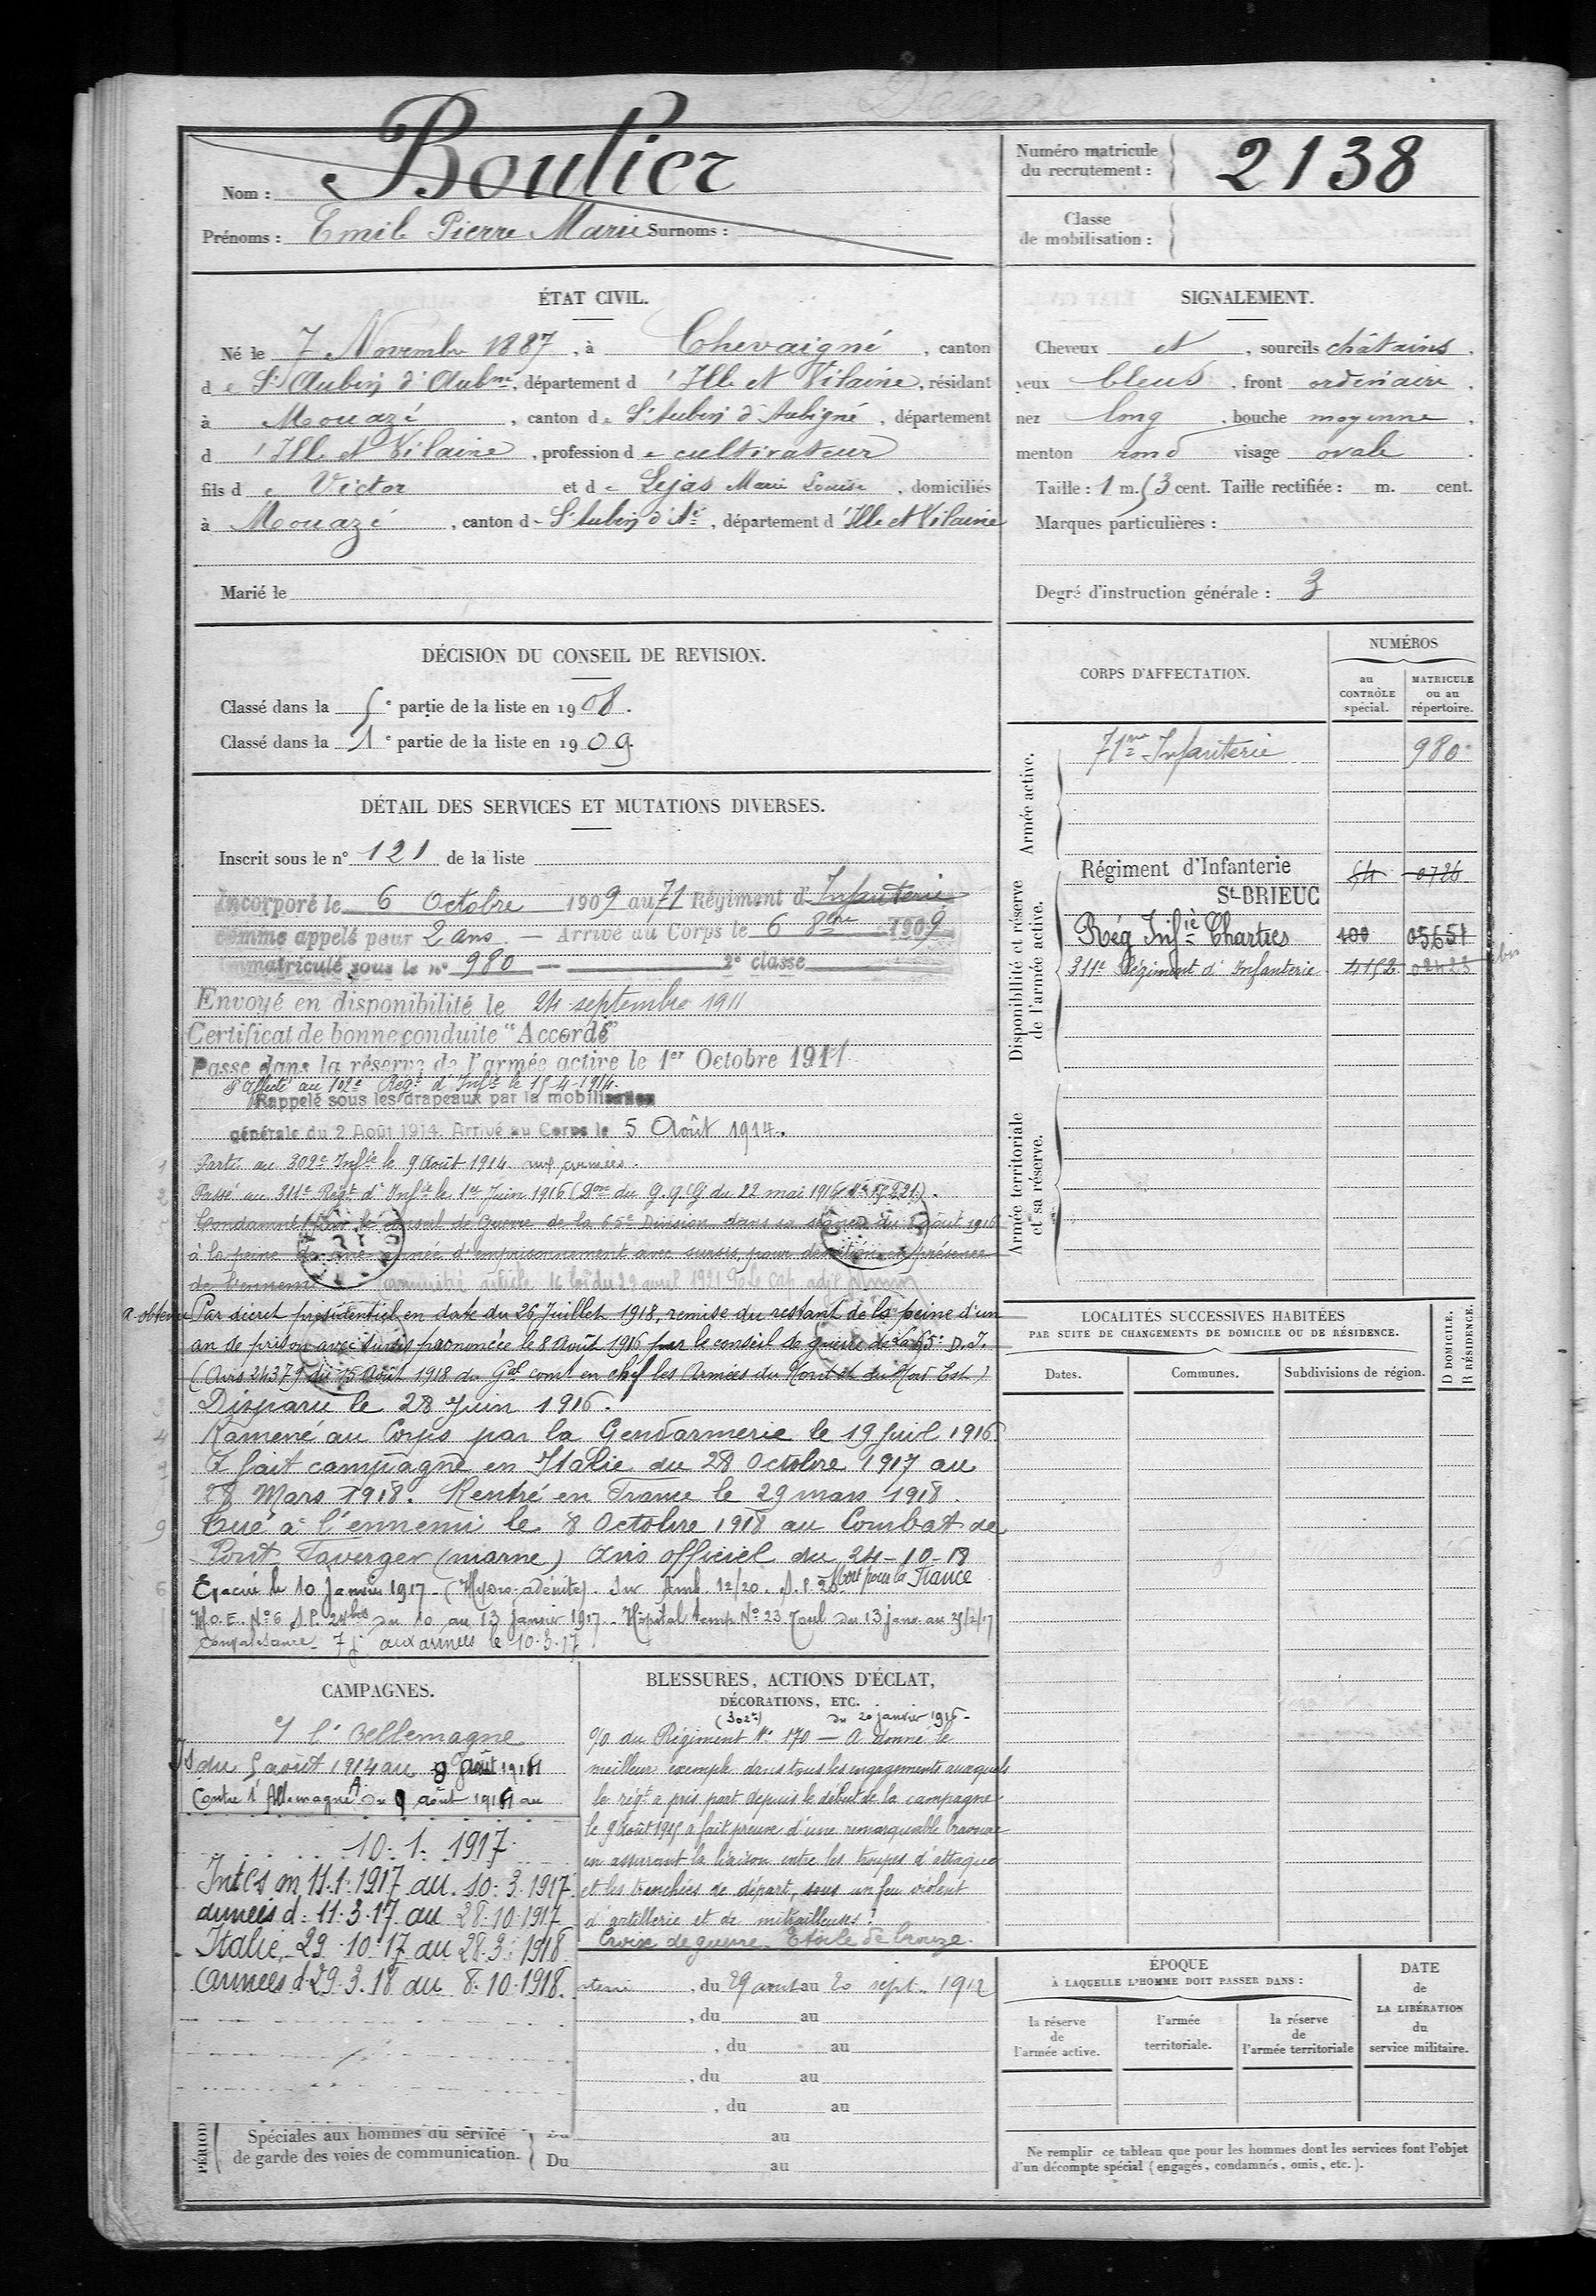 Décédé
Nom : Boulier
Prénoms : Emile Pierre Marie Surnoms :
Numéro matricule
du recrutement : 2138
Classe
de mobilisation :
ÉTAT CIVIL.
Né le 7 Novembre 1887, à Chevaigné, canton
de St Aubin d'Aubné, département d'Ille et Vilaine, résidant
à Mouazé, canton de St Aubin d'Aubigné, département
d'Ille et Vilaine, profession de cultivateur
fils de Victor et de Lejas Marie Louise, domiciliés
à Mouazé, canton de St Aubin d'Aé, département d'Ille et Vilaine
Marié le
SIGNALEMENT.
Cheveux et, sourcils châtains,
yeux bleus, front ordinaire,
nez long, bouche moyenne,
menton rond visage ovale.
Taille : 1 m. 53 cent. Taille rectifiée : m. cent.
Marques particulières :
Degré d'instruction générale : 3
DÉCISION DU CONSEIL DE REVISION.
Classé dans la 5e partie de la liste en 1908.
Classé dans la 1e partie de la liste en 1909.
DÉTAIL DES SERVICES ET MUTATIONS DIVERSES.
Inscrit sous le n° 121 de la liste
Incorporé le 6 Octobre 1909 au 71 Régiment d'Infanterie
comme appelé pour 2 ans — Arrivé au Corps le 6 8bre 1909
Immatriculé sous le n° 980 — 2e classe
Envoyé en disponibilité le 24 septembre 1911
Certificat de bonne conduite "Accordé"
Passe dans la réserve de l'armée active le 1er Octobre 1911
Affecté au 102e Régt d'Infie le 15-4-1914.
Rappelé sous les drapeaux par la mobilisation
générale du 2 Août 1914. Arrivé au Corps le 5 Août 1914.
1 Parti au 302e Infie le 9 Août 1914 aux armées.
2 Passé au 311e Régt d'Infie le 1er Juin 1916 (Don du G.Q.G. du 22 mai 1916 No 17221).
Condamné par le Conseil de Guerre de la 65e Division dans sa séance du 8 août 1916
à la peine de une année d'emprisonnement avec sursis, pour désertion en présence
de l'ennemi (amnistié article 16 loi du 29 avril 1921
a obtenu Par décret présidentiel en date du 26 Juillet 1918, remise du restant de la peine d'un
an de prison avec sursis prononcée le 8 Août 1916 par le conseil de guerre de la 65e D.I.
(Avis 24379 du 15 Août 1918 du Gal comt en chef les Armées du Nord et du Nord Est)
3 Disparu le 28 Juin 1916.
4 Ramené au Corps par la Gendarmerie le 19 Juil 1916.
A fait campagne en Italie du 28 Octobre 1917 au
28 Mars 1918. Rentré en France le 29 mars 1918.
9 Tué à l'ennemi le 8 Octobre 1918 au Combat de
Pont Faverger (marne) Avis officiel du 24-10-18
Mort pour la France
6 Evacué le 10 janvier 1917 - (Hydro-adénite). Sur Amb. 12/20. S.P. 20.
H.O.E. No 6 S.P. 24bis du 10 au 13 janvier 1917 - Hôpital temp. No 23 Toul du 13 janv. au 25/2/17
Convalescence - 7 j. aux armées le 10-3-17
CORPS D'AFFECTATION.
NUMÉROS
au
CONTRÔLE
spécial.
MATRICULE
ou au
répertoire.
Armée active.
71me Infanterie 980
Disponibilité et réserve
de l'armée active.
Régiment d'Infanterie 64 0726
St-BRIEUC
Rég Infie Chartres 100 05651
311e Régiment d'Infanterie 4152 02423 bis
Armée territoriale
et sa réserve.
LOCALITÉS SUCCESSIVES HABITÉES
PAR SUITE DE CHANGEMENTS DE DOMICILE OU DE RÉSIDENCE.
Dates.
Communes.
Subdivisions de région.
D DOMICILE.
R RÉSIDENCE.
CAMPAGNES.
C/ l'Allemagne
du 5 août 1914 au 9 août 1914
Contre l'Allemagne A du 9 août 1914 au
10. 1. 1917
Int CS du 11.1.1917 au 10.3.1917
armées d. 11.3.17 au 28.10.1917
Italie 29.10.17 au 28.3.1918
armées d. 29.3.18 au 8.10.1918.
BLESSURES, ACTIONS D'ÉCLAT,
DÉCORATIONS, ETC.
(302e) du 20 janvier 1916 -
O/o du Régiment No 170 — A donné le
meilleur exemple dans tous les engagements auxquels
le régt a pris part depuis le début de la campagne
le 9 Août 1915 a fait preuve d'une remarquable bravoure
en assurant la liaison entre les troupes d'attaque
et les tranchées de départ, sous un feu violent
d'artillerie et de mitrailleuses.
Croix de guerre. Etoile de bronze.
, du 29 aout au 20 sept. 1912
, du au
, du au
, du au
, du au
PÉRIOD
Spéciales aux hommes du service
de garde des voies de communication.
au
Du au
ÉPOQUE
À LAQUELLE L'HOMME DOIT PASSER DANS :
la réserve
de
l'armée active.
l'armée
territoriale.
la réserve
de
l'armée territoriale
DATE
de
LA LIBÉRATION
du
service militaire.
Ne remplir ce tableau que pour les hommes dont les services font l'objet
d'un décompte spécial (engagés, condamnés, omis, etc.).